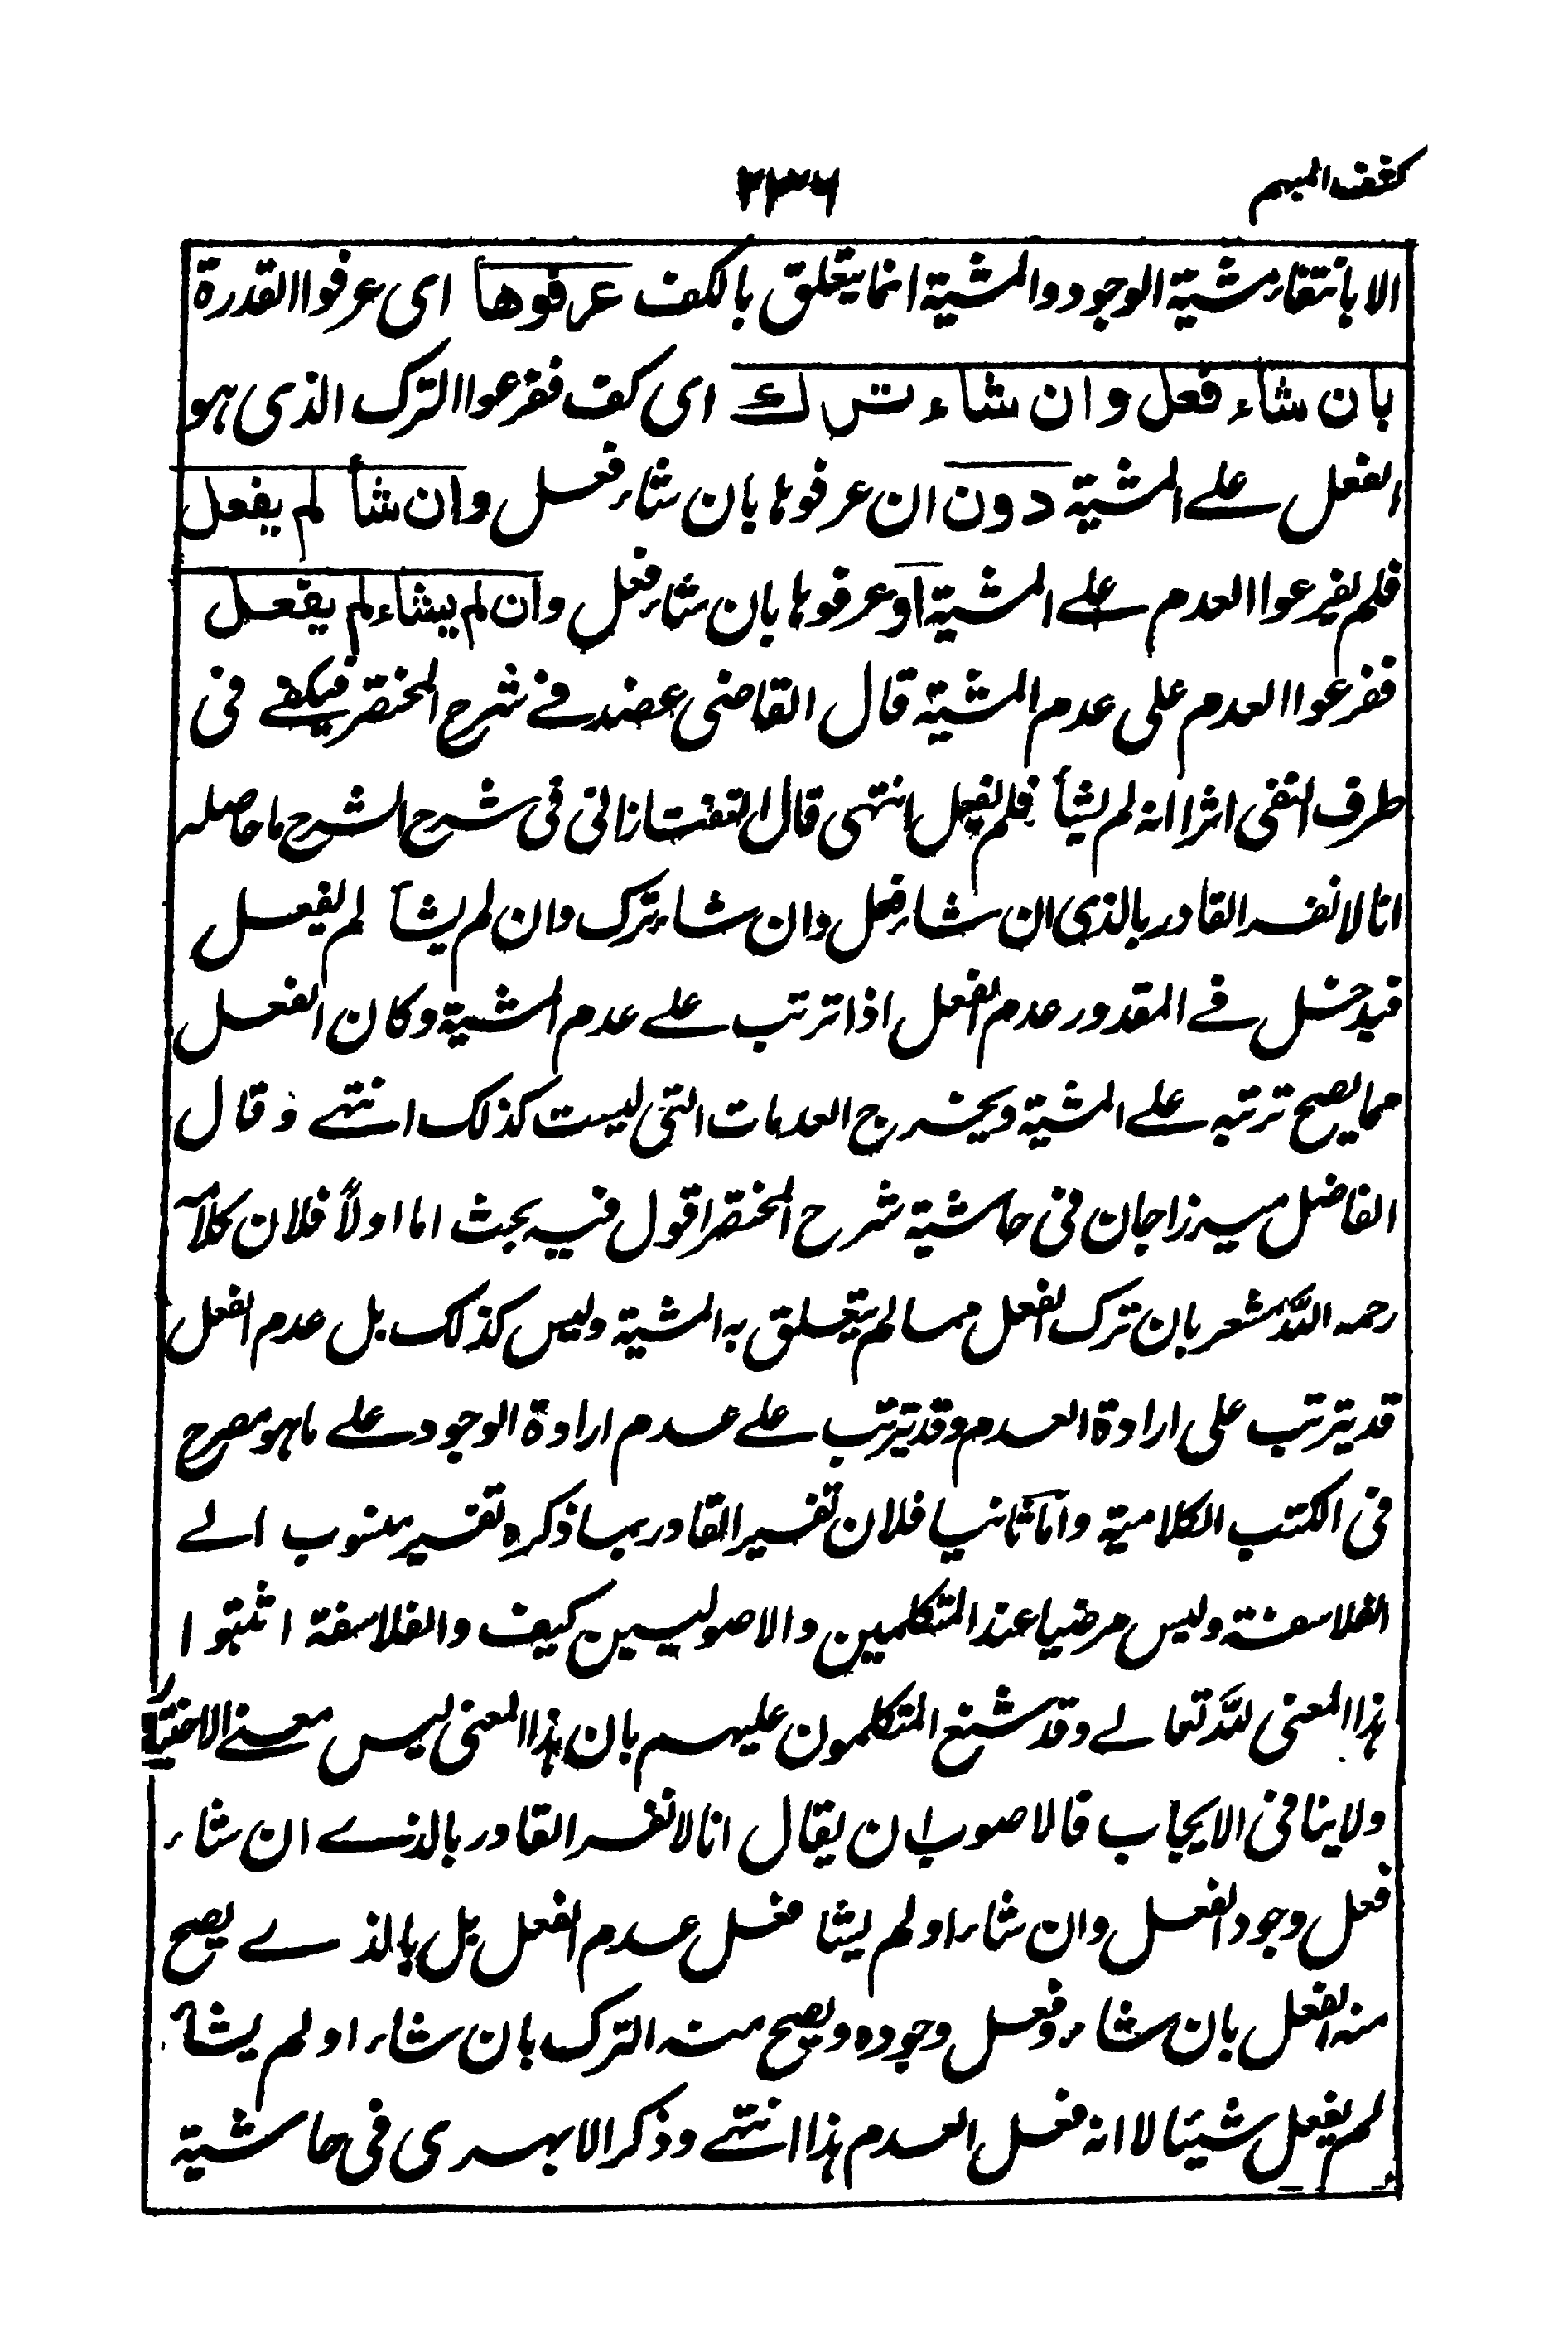 كشف المبهم
٢٣٦
الا بانتفاء مشية الوجود والمشية انما يتعلق بالكف عرفوها اى عرفوا القدرة
بان شاء فعل وان شاء ترك اى كف ففرعوا الترك الذى هو
الفعل على المشية دون ان عرفوها بان شاء فعل وان شأ لم يفعل
فلم يفرعوا العدم على المشية او عرفوها بان شاء فعل وان لم يشاء لم يفعل
ففرعوا العدم على عدم المشية قال القاضى عضد فى شرح المختصر فيكفى فى
طرف النفى اثرا انه لم يشأ فلم يفعل انتهى قال التفتازانى فى شرح الشرح ما حاصله
انا لا نفسر القادر بالذى ان شاء فعل وان شاء ترك وان لم يشأ لم يفعل
فيدخل فى المقدور عدم الفعل اذا ترتب على عدم المشية وكان الفعل
مما يصح ترتبه على المشية ويخرج العدمات التى ليست كذلك انتهى وقال
الفاضل ميرزاجان فى حاشية شرح المختصر اقول فيه بحث اما اولاً فلان كلامه
رحمه الله مشعر بان ترك الفعل مما لم يتعلق به المشية وليس كذلك بل عدم الفعل
قد يترتب على ارادة العدم وقد يترتب على عدم ارادة الوجود على ما هو مصرح
فى الكتب الكلامية واما ثانيا فلان تفسير القادر بما ذكره تفسير منسوب الى
الفلاسفة وليس مرضيا عند المتكلمين والاصوليين كيف والفلاسفة اثبتوا
هذا المعنى لله تعالى وقد شنع المتكلمون عليهم بان هذا المعنى ليس معنى الاختيار
ولا ينافى الايجاب فالاصوب ان يقال انا لا نفسر القادر بالذى ان شاء
فعل وجود الفعل وان شاء او لم يشا فعل عدم الفعل بل بالذى يصح
منه الفعل بان شاء وفعل وجوده ويصح منه الترك بان شاء او لم يشأ
لم يفعل شيئا لا انه فعل العدم هذا انتهى وذكر الابهرى فى حاشية